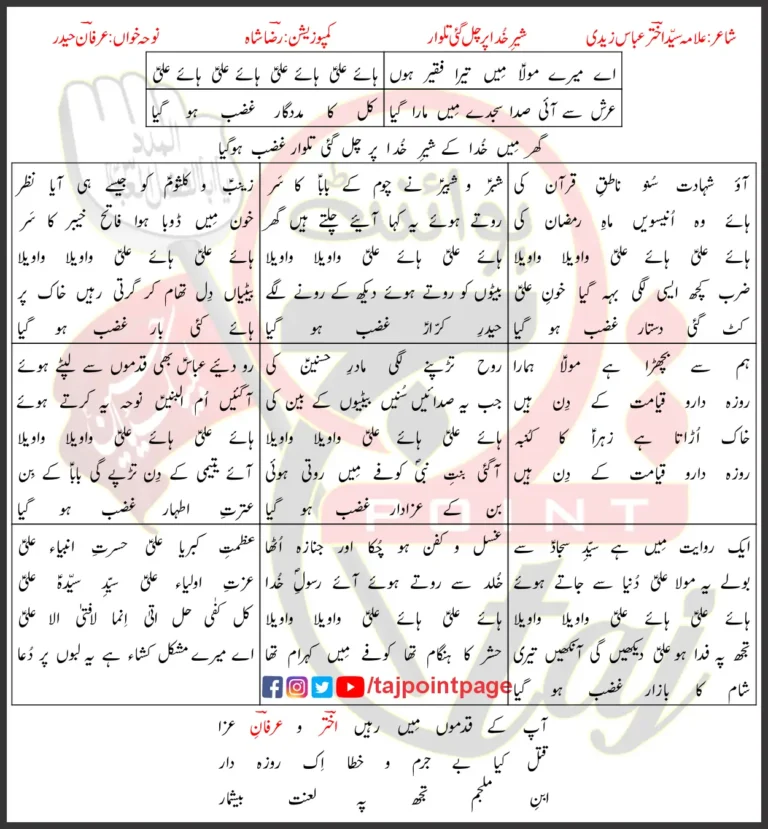 شاعر: علامہ سیّد اختؔر عباس زیدی
شیرِ خُدا پر چل گئی تلوار
کمپوزیشن: رضاؔ شاہ
نوحہ خواں: عرفانؔ حیدر
اے میرے مولاؑ میں تیرا فقیر ہوں
ہائے علیؑ ہائے علیؑ ہائے علیؑ ہائے علیؑ
عرش سے آئی صدا سجدے میں مارا گیا
کل کا مددگار غضب ہو گیا
گھر میں خُدا کے شیرِ خُدا پر چل گئی تلوار غضب ہوگیا
آؤ شہادت سُنو ناطقِ قرآن کی
ہائے وہ اُنیسویں ماہِ رمضان کی
ہائے علیؑ ہائے علیؑ واویلا واویلا
ضرب کچھ ایسی لگی بہہ گیا خونِ علیؑ
کٹ گئی دستار غضب ہو گیا
شبرؑ و شبیرؑ نے چوم کے باباؑ کا سَر
روتے ہوئے یہ کہا آیئے چلتے ہیں گھر
ہائے علیؑ ہائے علیؑ واویلا واویلا
بیٹوں کو روتے ہوئے دیکھ کے رونے لگے
حیدرِ کرّارؑ غضب ہو گیا
زینبؑ و کلثومؑ کو جیسے ہی آیا نظر
خون میں ڈوبا ہوا فاتحِ خیبر کا سَر
ہائے علیؑ ہائے علیؑ واویلا واویلا
بیٹیاں دِل تھام کر گرتی رہیں خاک پر
ہائے کئی بار غضب ہو گیا
ہم سے بچھڑا ہے مولاؑ ہمارا
روزہ دارو قیامت کے دِن ہیں
خاک اُڑاتا ہے زہراؑ کا کنبہ
روزہ دارو قیامت کے دِن ہیں
روح تڑپنے لگی مادرِ حسنینؑ کی
جب یہ صدائیں سُنیں بیٹیوں کے بین کی
ہائے علیؑ ہائے علیؑ واویلا واویلا
آگئی بنتِ نبیؐ کوفے میں روتی ہوئی
بن کے عزادار غضب ہو گیا
رو دیئے عباسؑ بھی قدموں سے لپٹے ہوئے
آگئیں اُم البنینؑ نوحہ یہ کرتے ہوئے
ہائے علیؑ ہائے علیؑ واویلا واویلا
آئے یتیمی کے دِن تڑپے گی باباؑ کے بِن
عترتِ اطہار غضب ہو گیا
ایک روایت میں ہے سیّدِ سجادؑ سے
بولے یہ مولا علیؑ دُنیا سے جاتے ہوئے
ہائے علیؑ ہائے علیؑ واویلا واویلا
تجھ پہ فدا ہو علیؑ دیکھیں گی آنکھیں تیری
شام کا بازار غضب ہو گیا
غسل و کفن ہو چُکا اور جنازہ اُٹھا
خُلد سے روتے ہوئے آئے رسولِؐ خُدا
ہائے علیؑ ہائے علیؑ واویلا واویلا
حشر کا ہنگام تھا کوفے میں کہرام تھا
/tajpointpage
عظمتِ کبریا علیؑ حسرتِ انبیاء علیؑ
عزتِ اولیاء علیؑ سیّدِ سیّدہؑ علیؑ
کل کفٰی حل اتیٰ انما لافتیٰ الا علیؑ
اے میرے مشکل کشاء ہے یہ لبوں پر دُعا
آپ کے قدموں میں رہیں اختؔر و عرفانؔ عزا
قتل کیا بے جرم و خطا اِک روزہ دار
ابنِ ملجم تجھ پہ لعنت بیشمار
پوائنٹ
تاج
POINT
taj